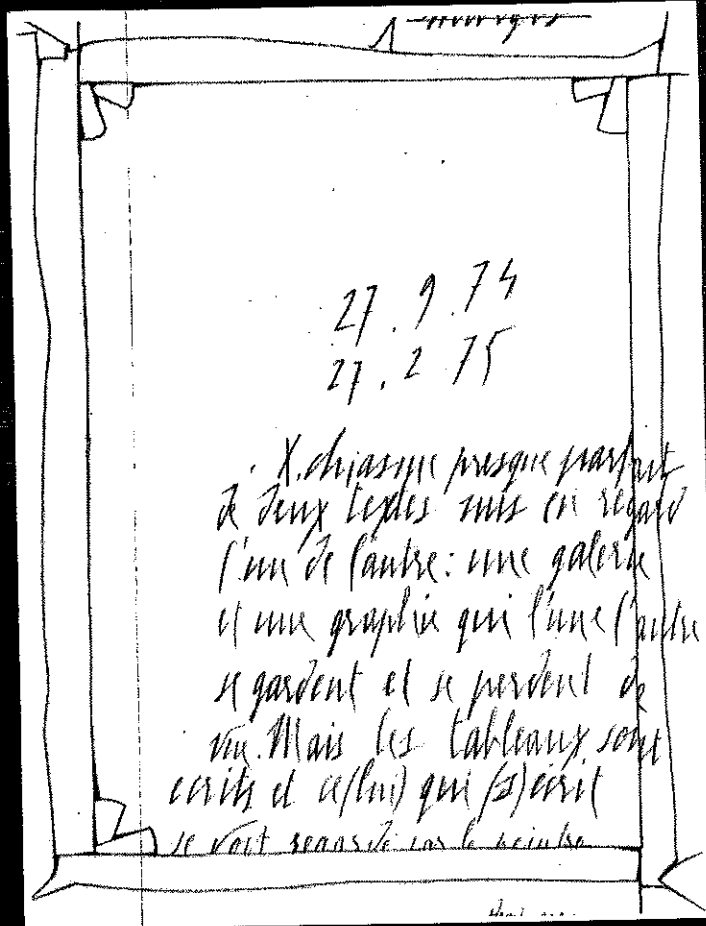 27.9.74
27.2.75
X. chiasme presque parfait
de deux textes mis en regard
l'un de l'autre: une galerie
et une graphie qui l'une l'autre
se gardent et se perdent de
vue. Mais les tableaux sont
écrits et ce(lui) qui (s)écrit
se voit regardé par le peintre